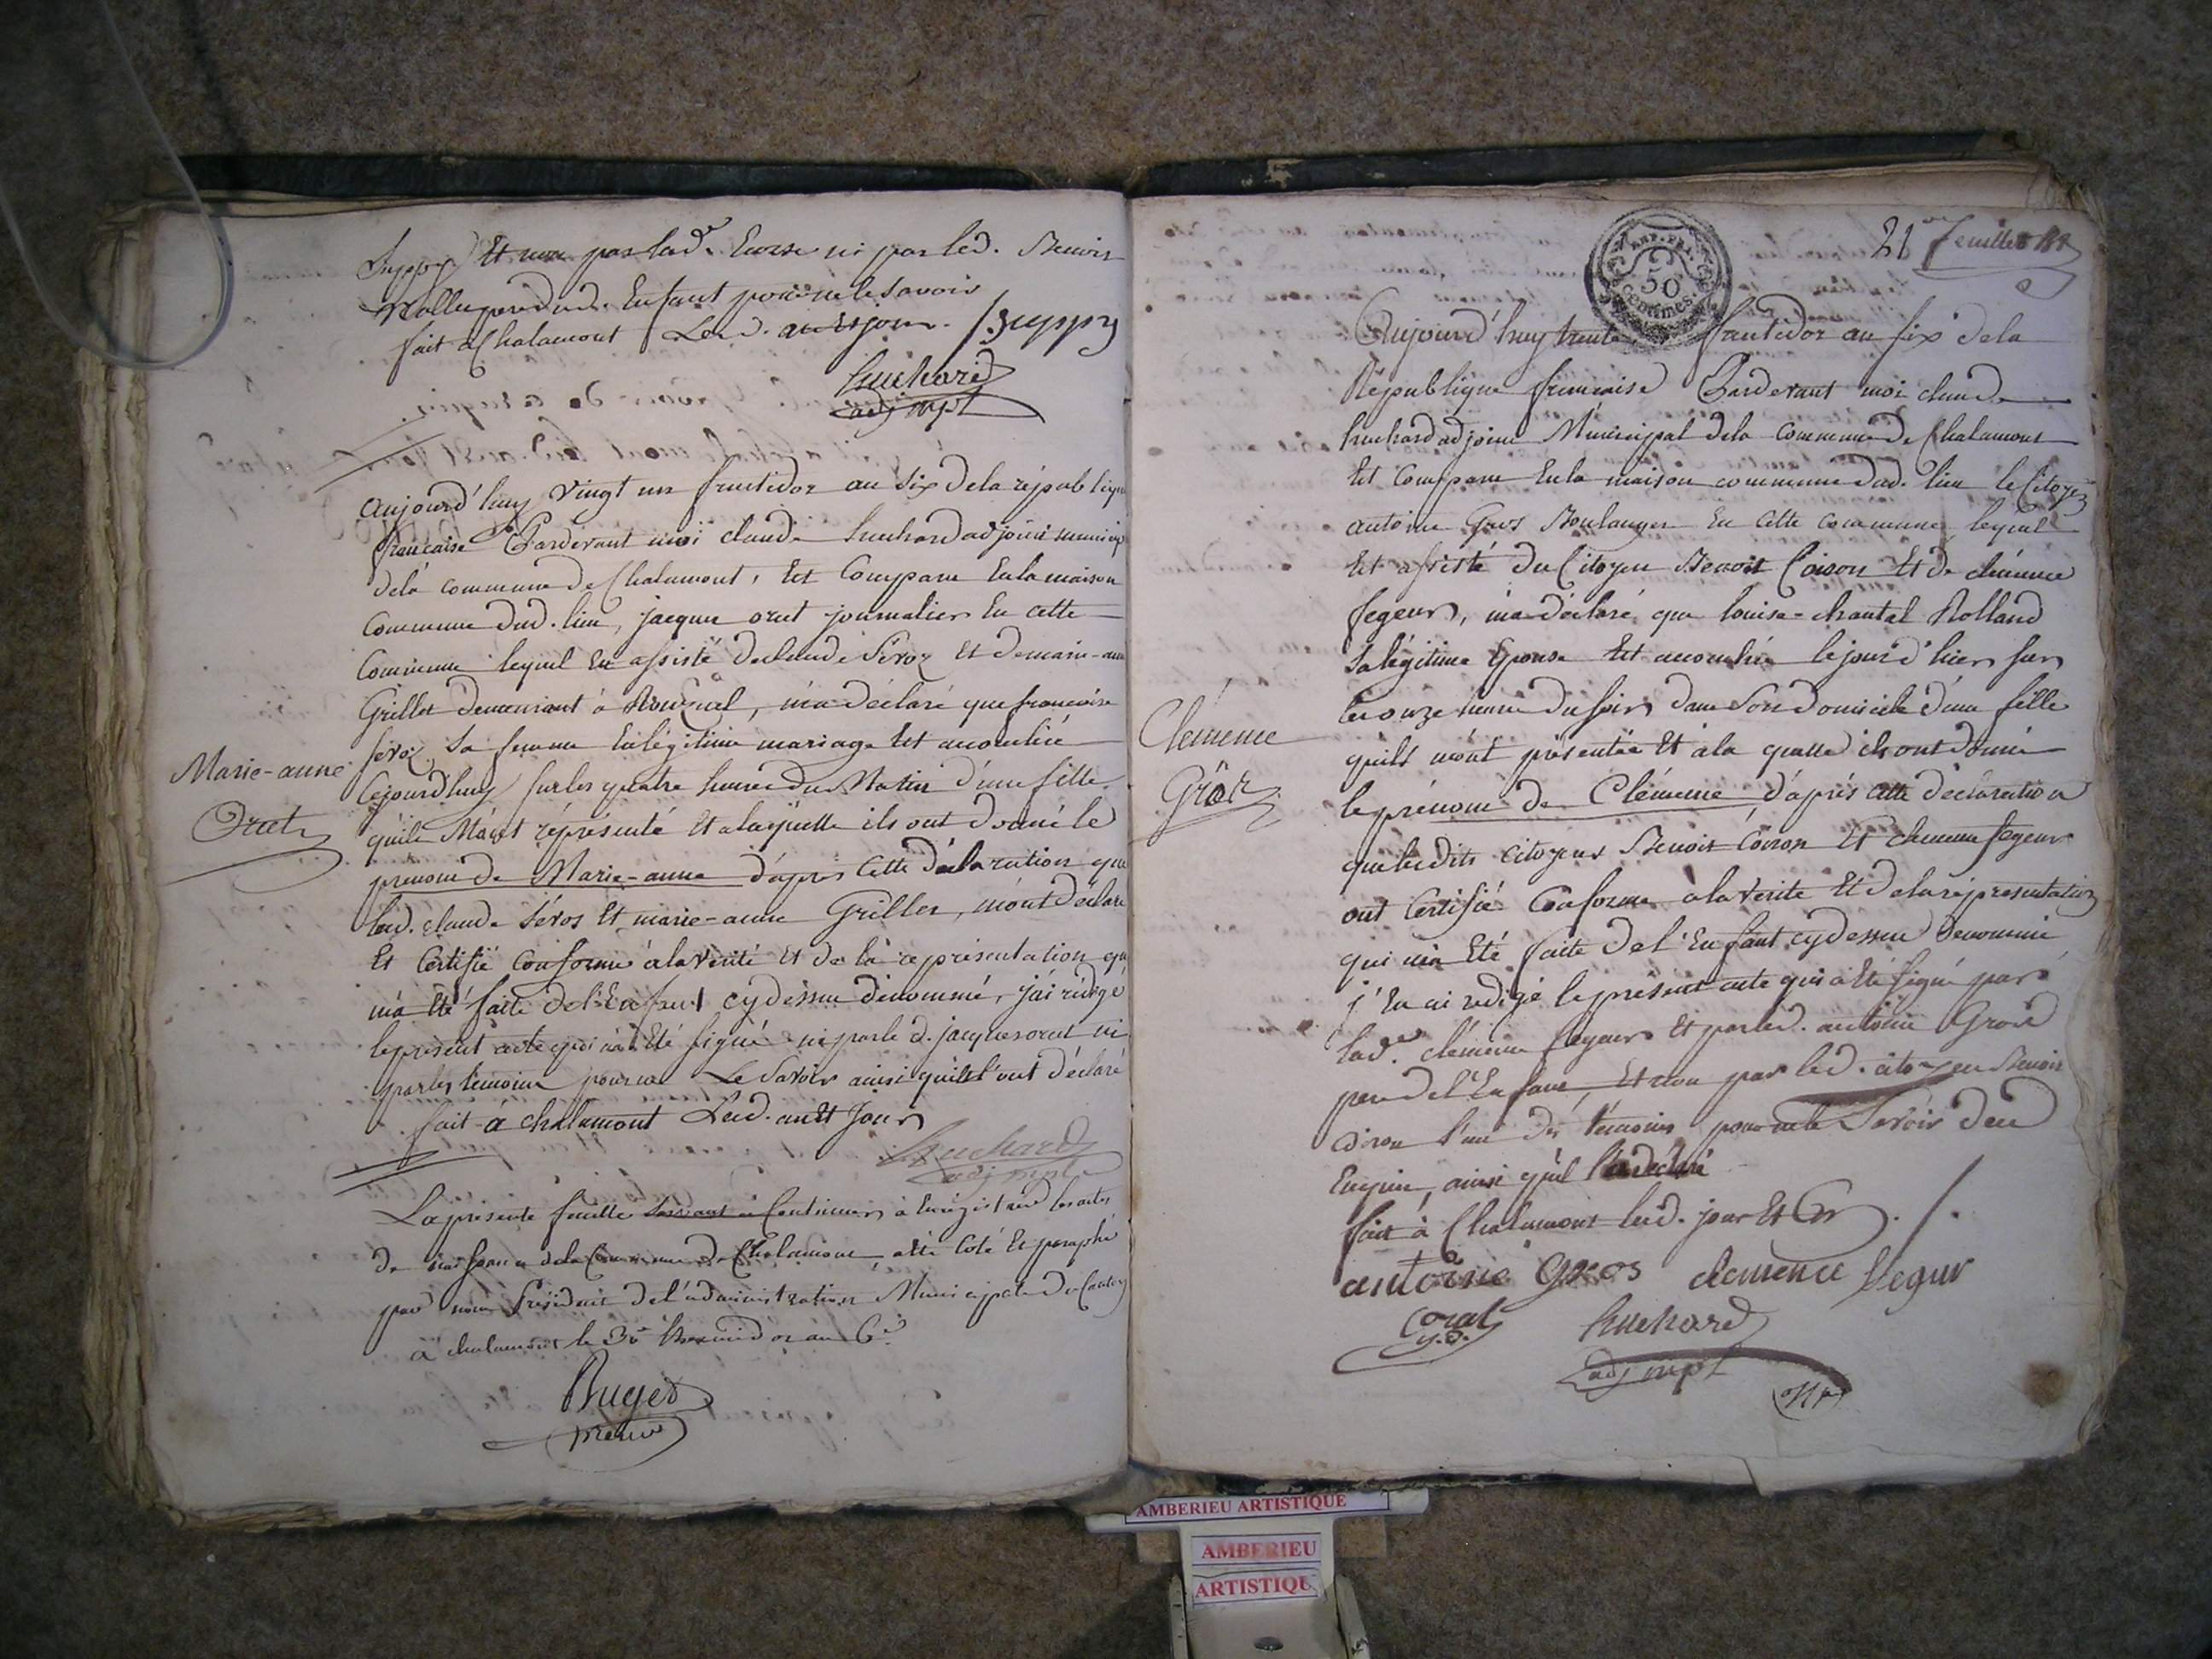 Suppy Et non par lad.e Envse ni par led. Benoit
Nallet pere dud. Enfant pour ne le savoir
fait a Chalamont Led. an et jour. /. Suppy
huchard
adj mpl
aujourd'huy vingt un fructidor an six de la républiqu
francaise Pardevant moi claude huchard adjoint municip
de la commune de Chalamont, Est Comparu En la maison
Commune dud. lieu, jacque orut journalier En cette
Commune lequel En assisté de claude Sevoz Et de marie-anne
Grillet demeurant à Ronzuel, m'a déclaré que francoise
Sevoz, sa femme En légitime mariage Est accouchée
Cejourd'huy sur les quatre heures du Matin d'une fille
Marie-anne
Orut
quils M'ont réprésenté Et a laquelle ils ont donné le
prenom de Marie-anne d'apres Cette déclaration que
led. claude Sévos Et marie-anne Grillet, m'ont déclaré
Et Certifié Conforme à la Vérité Et de la représentation qui
m'a Eté faite de l'Enfant cy dessus dénommé, j'ai rédigé
le present acte qui n'a Eté signé ni par le d. jacques orut ni
par les temoins pour ne Le Savoir ainsi quils l'ont déclaré
fait à chalamont Led. an Et Jour
huchard
adj mpl
La présente feuille Servant à Continuer à Enrégistrer les actes
de naissance de la Commune de Chalamont, a été Coté Et paraphé
par nous Président de l'administration Municipale du Canton
à chalamont le 30 thermidor an 6e
Buget
21 feuillet
REP. FRA.
50
Centimes
Aujourd'huy trente fructidor an six de la
République francaise Pardevant moi claude
huchard adjoint Municipal de la Commune de Chalamont
Est Comparu En la maison commune dud. lieu le Citoyen
antoine Gros Boulanger En Cette Commune, lequel
Est assisté du Citoyen Benoit Coiron Et de clémence
Segeur, m'a déclaré que louise-chantal Rolland
sa légitime Epouse Est accouchée le jour d'hier sur
les onze heures du soir dans Son domicile d'une fille
Clémence
Gros
quils m'ont présentée Et a la quelle ils ont donné
le prénom de Clémence, d'après cette déclaration
que lesdits Citoyens Benoit Coiron Et clemence Segeur
ont Certifié Conforme à la Vérité Et de la réprésentation
qui m'a Eté faite de l'Enfant cy dessus denommé
j'En ai redigé le présent acte qui a Eté signé par
lad.e clémence Segeur Et par led. antoine Gros
pere de l'Enfant, Et non par led. citoyen Benoit
Coiron l'un des témoins pour ne le Savoir deu
Enquis, ainsi quil l'a declaré
fait à Chalamont led. jour Et an ./.
antoine Gros clemence Segur
huchard
adj mpl
AMBERIEU ARTISTIQUE
AMBERIEU
ARTISTIQUE